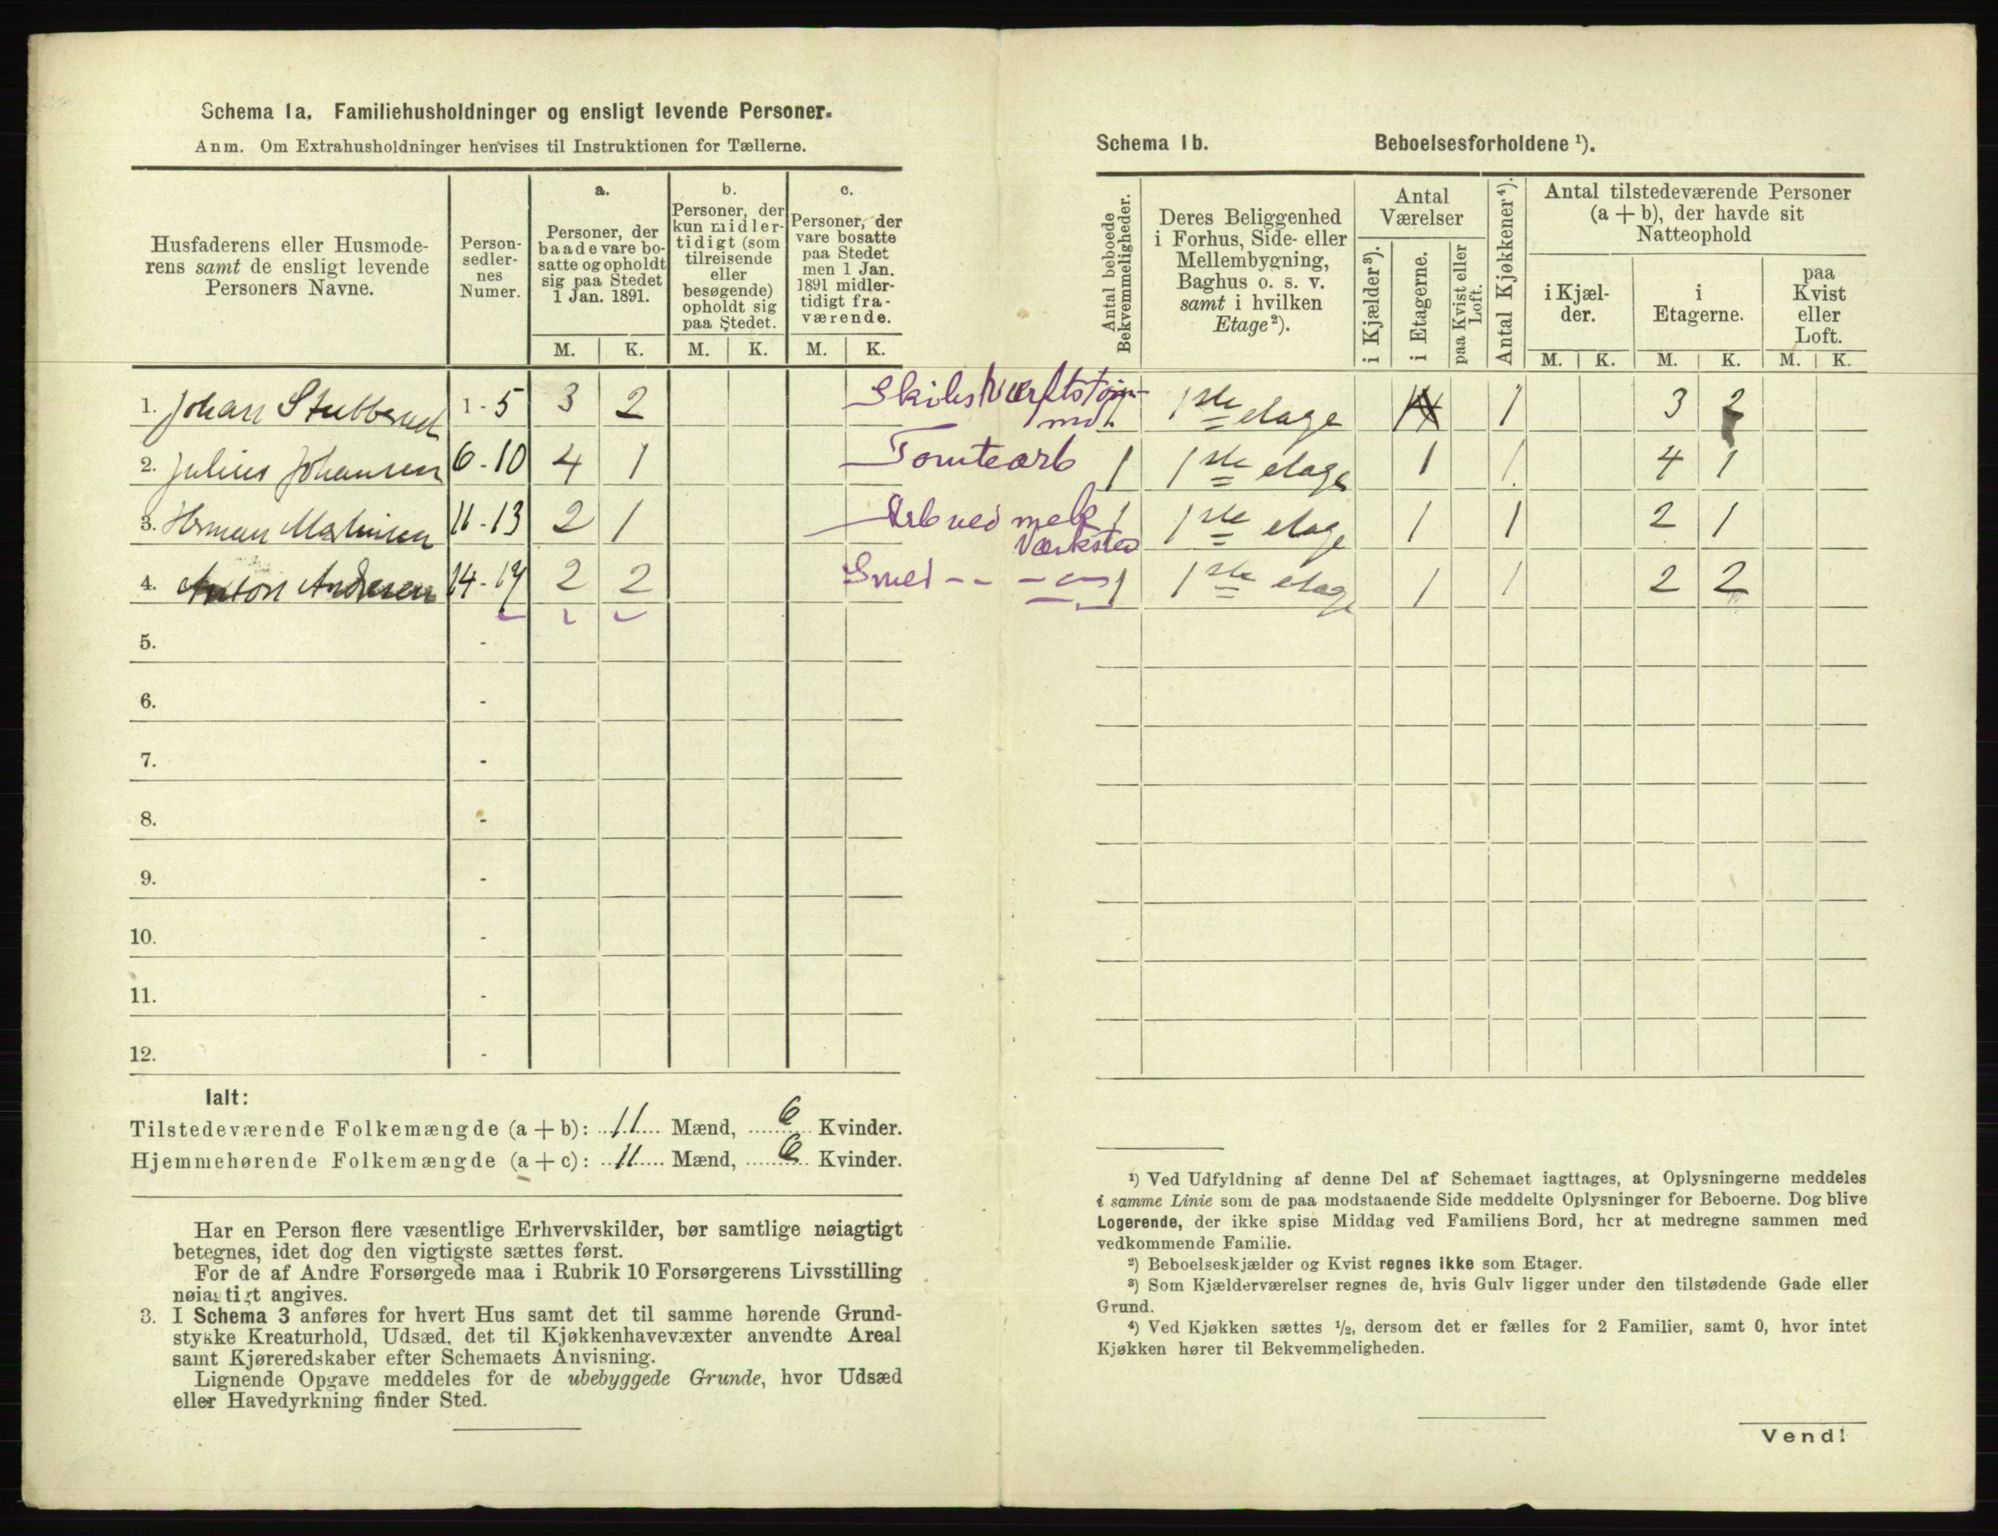 Schema 1a. Familiehusholdninger og ensligt levende Personer.
Anm. Om Extrahusholdninger henvises til Instruktionen for Tællerne.
Husfaderens eller Husmoderens samt de ensligt levende Personers Navne.
Personsedlernes Numer.
a.
Personer, der baade vare bosatte og opholdt sig paa Stedet 1 Jan. 1891.
b.
Personer, der kun midlertidigt (som tilreisende eller besøgende) opholdt sig paa Stedet.
c.
Personer, der vare bosatte paa Stedet men 1 Jan. 1891 midlertidigt fraværende.
M. K. M. K. M. K.
1. Johan Stubberud 1 - 5 3 2
2. Julius Johansen 6 - 10 4 1 Tomtearb
3. Herman Martinsen 11 - 13 2 1 Arb ved mek Værksted
4. Anton Andresen 14 - 17 2 2 Smed - - -
5. -
6. -
7. -
8. -
9. -
10. -
11. -
12. -
Ialt:
Tilstedeværende Folkemængde (a + b): 11 Mænd, 6 Kvinder.
Hjemmehørende Folkemængde (a + c): 11 Mænd, 6 Kvinder.
Har en Person flere væsentlige Erhvervskilder, bør samtlige nøiagtigt
betegnes, idet dog den vigtigste sættes først.
For de af Andre Forsørgede maa i Rubrik 10 Forsørgerens Livsstilling
nøiagtigt angives.
3. I Schema 3 anføres for hvert Hus samt det til samme hørende Grund-
stykke Kreaturhold, Udsæd, det til Kjøkkenhavevæxter anvendte Areal
samt Kjøreredskaber efter Schemaets Anvisning.
Lignende Opgave meddeles for de ubebyggede Grunde, hvor Udsæd
eller Havedyrkning finder Sted.
Schema 1b. Beboelsesforholdene ¹).
Antal beboede Bekvemmeligheder.
Deres Beliggenhed i Forhus, Side- eller Mellembygning, Baghus o. s. v. samt i hvilken Etage²).
Antal Værelser
i Kjælder³).
i Etagerne.
paa Kvist eller Loft.
Antal Kjøkkener⁴).
Antal tilstedeværende Personer (a + b), der havde sit Natteophold
i Kjælder.
i Etagerne.
paa Kvist eller Loft.
M. K. M. K. M. K.
1 1ste etage 1 3 2
1 1ste etage 1 1 4 1
1 1ste etage 1 1 2 1
1 1ste etage 1 1 2 2
¹) Ved Udfyldning af denne Del af Schemaet iagttages, at Oplysningerne meddeles
i samme Linie som de paa modstaaende Side meddelte Oplysninger for Beboerne. Dog blive
Logerende, der ikke spise Middag ved Familiens Bord, her at medregne sammen med
vedkommende Familie.
²) Beboelseskjælder og Kvist regnes ikke som Etager.
³) Som Kjælderværelser regnes de, hvis Gulv ligger under den tilstødende Gade eller
Grund.
⁴) Ved Kjøkken sættes ½, dersom det er fælles for 2 Familier, samt 0, hvor intet
Kjøkken hører til Bekvemmeligheden.
Vend!